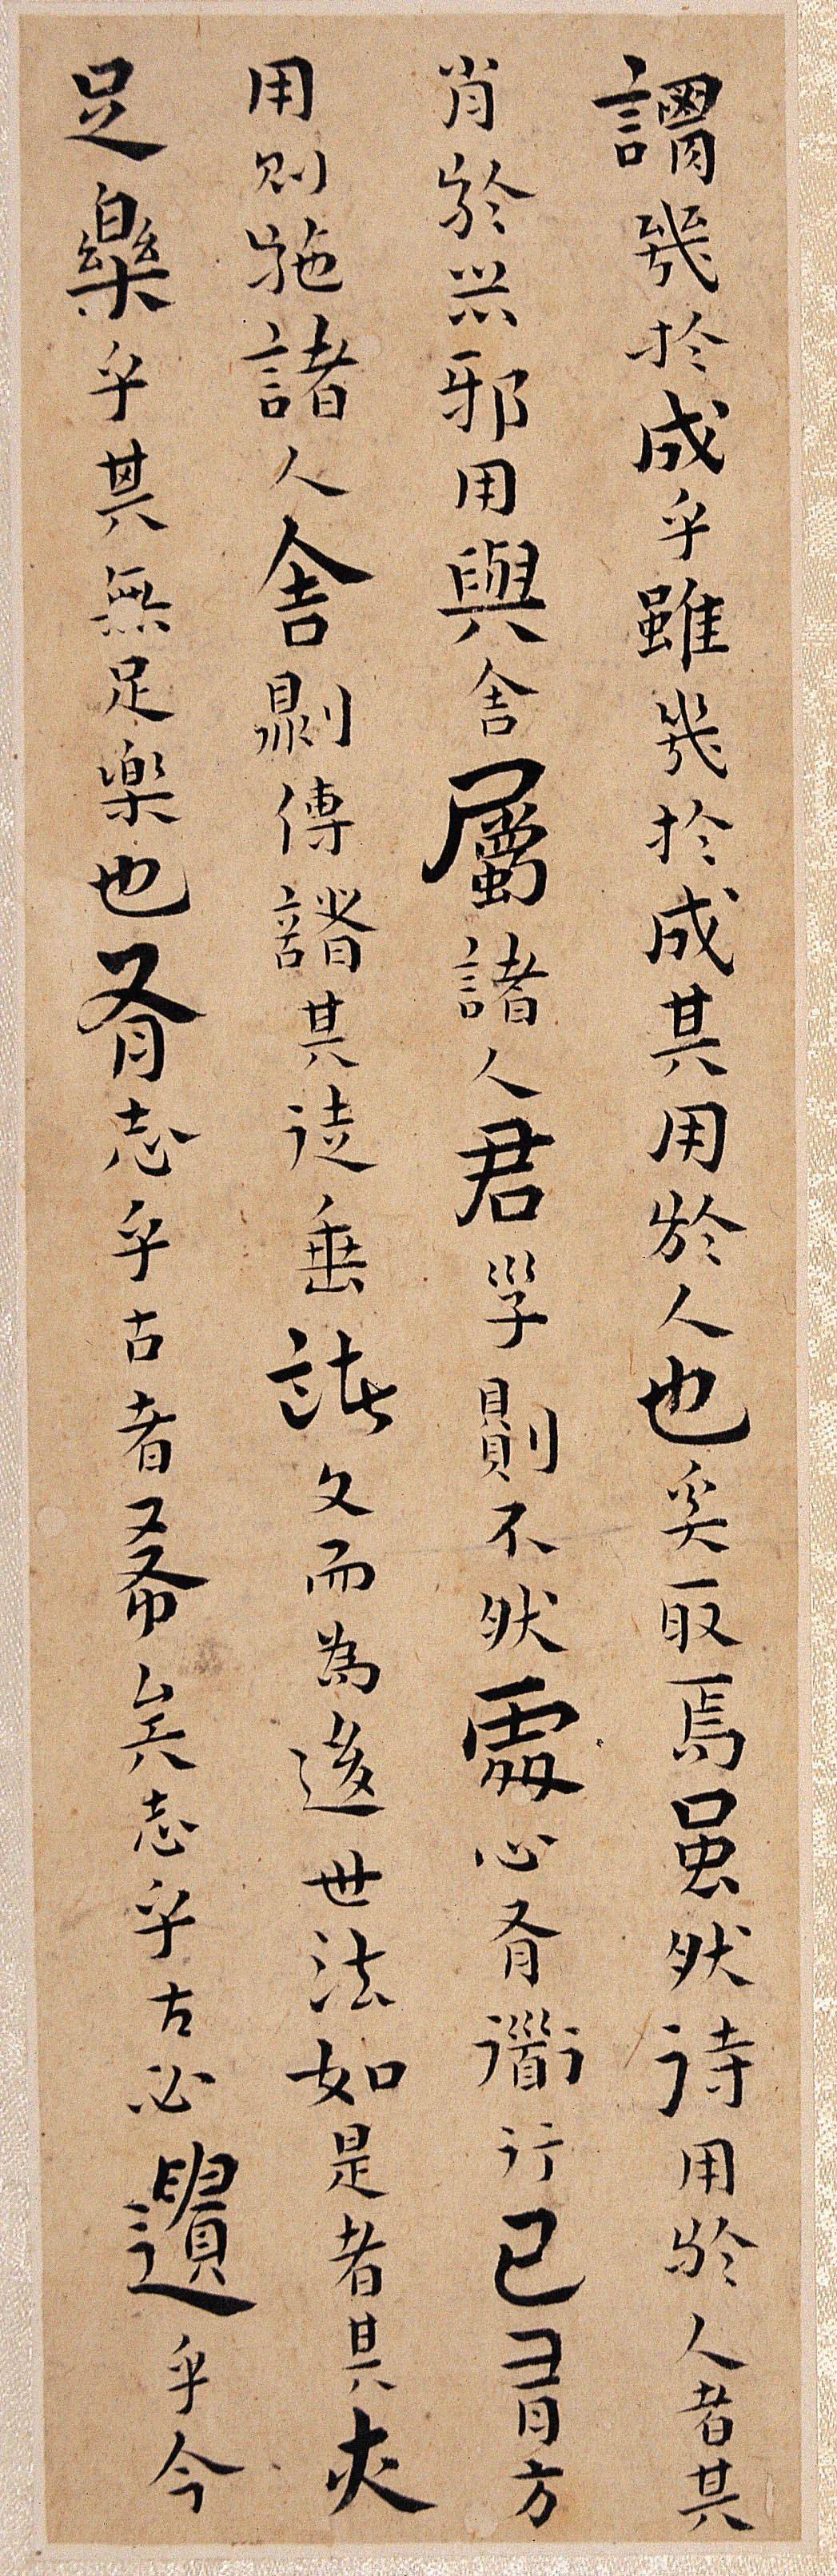 謂幾於成乎雖幾於成其用於人也奚取焉虽然待用於人者其
肖於器邪用與舍屬諸人君子則不然處心有道行己有方
用則施諸人舍則傳諸其徒垂諸文而為後世法如是者其亦
足樂乎其無足楽也有志乎古者希矣志乎古必遺乎今